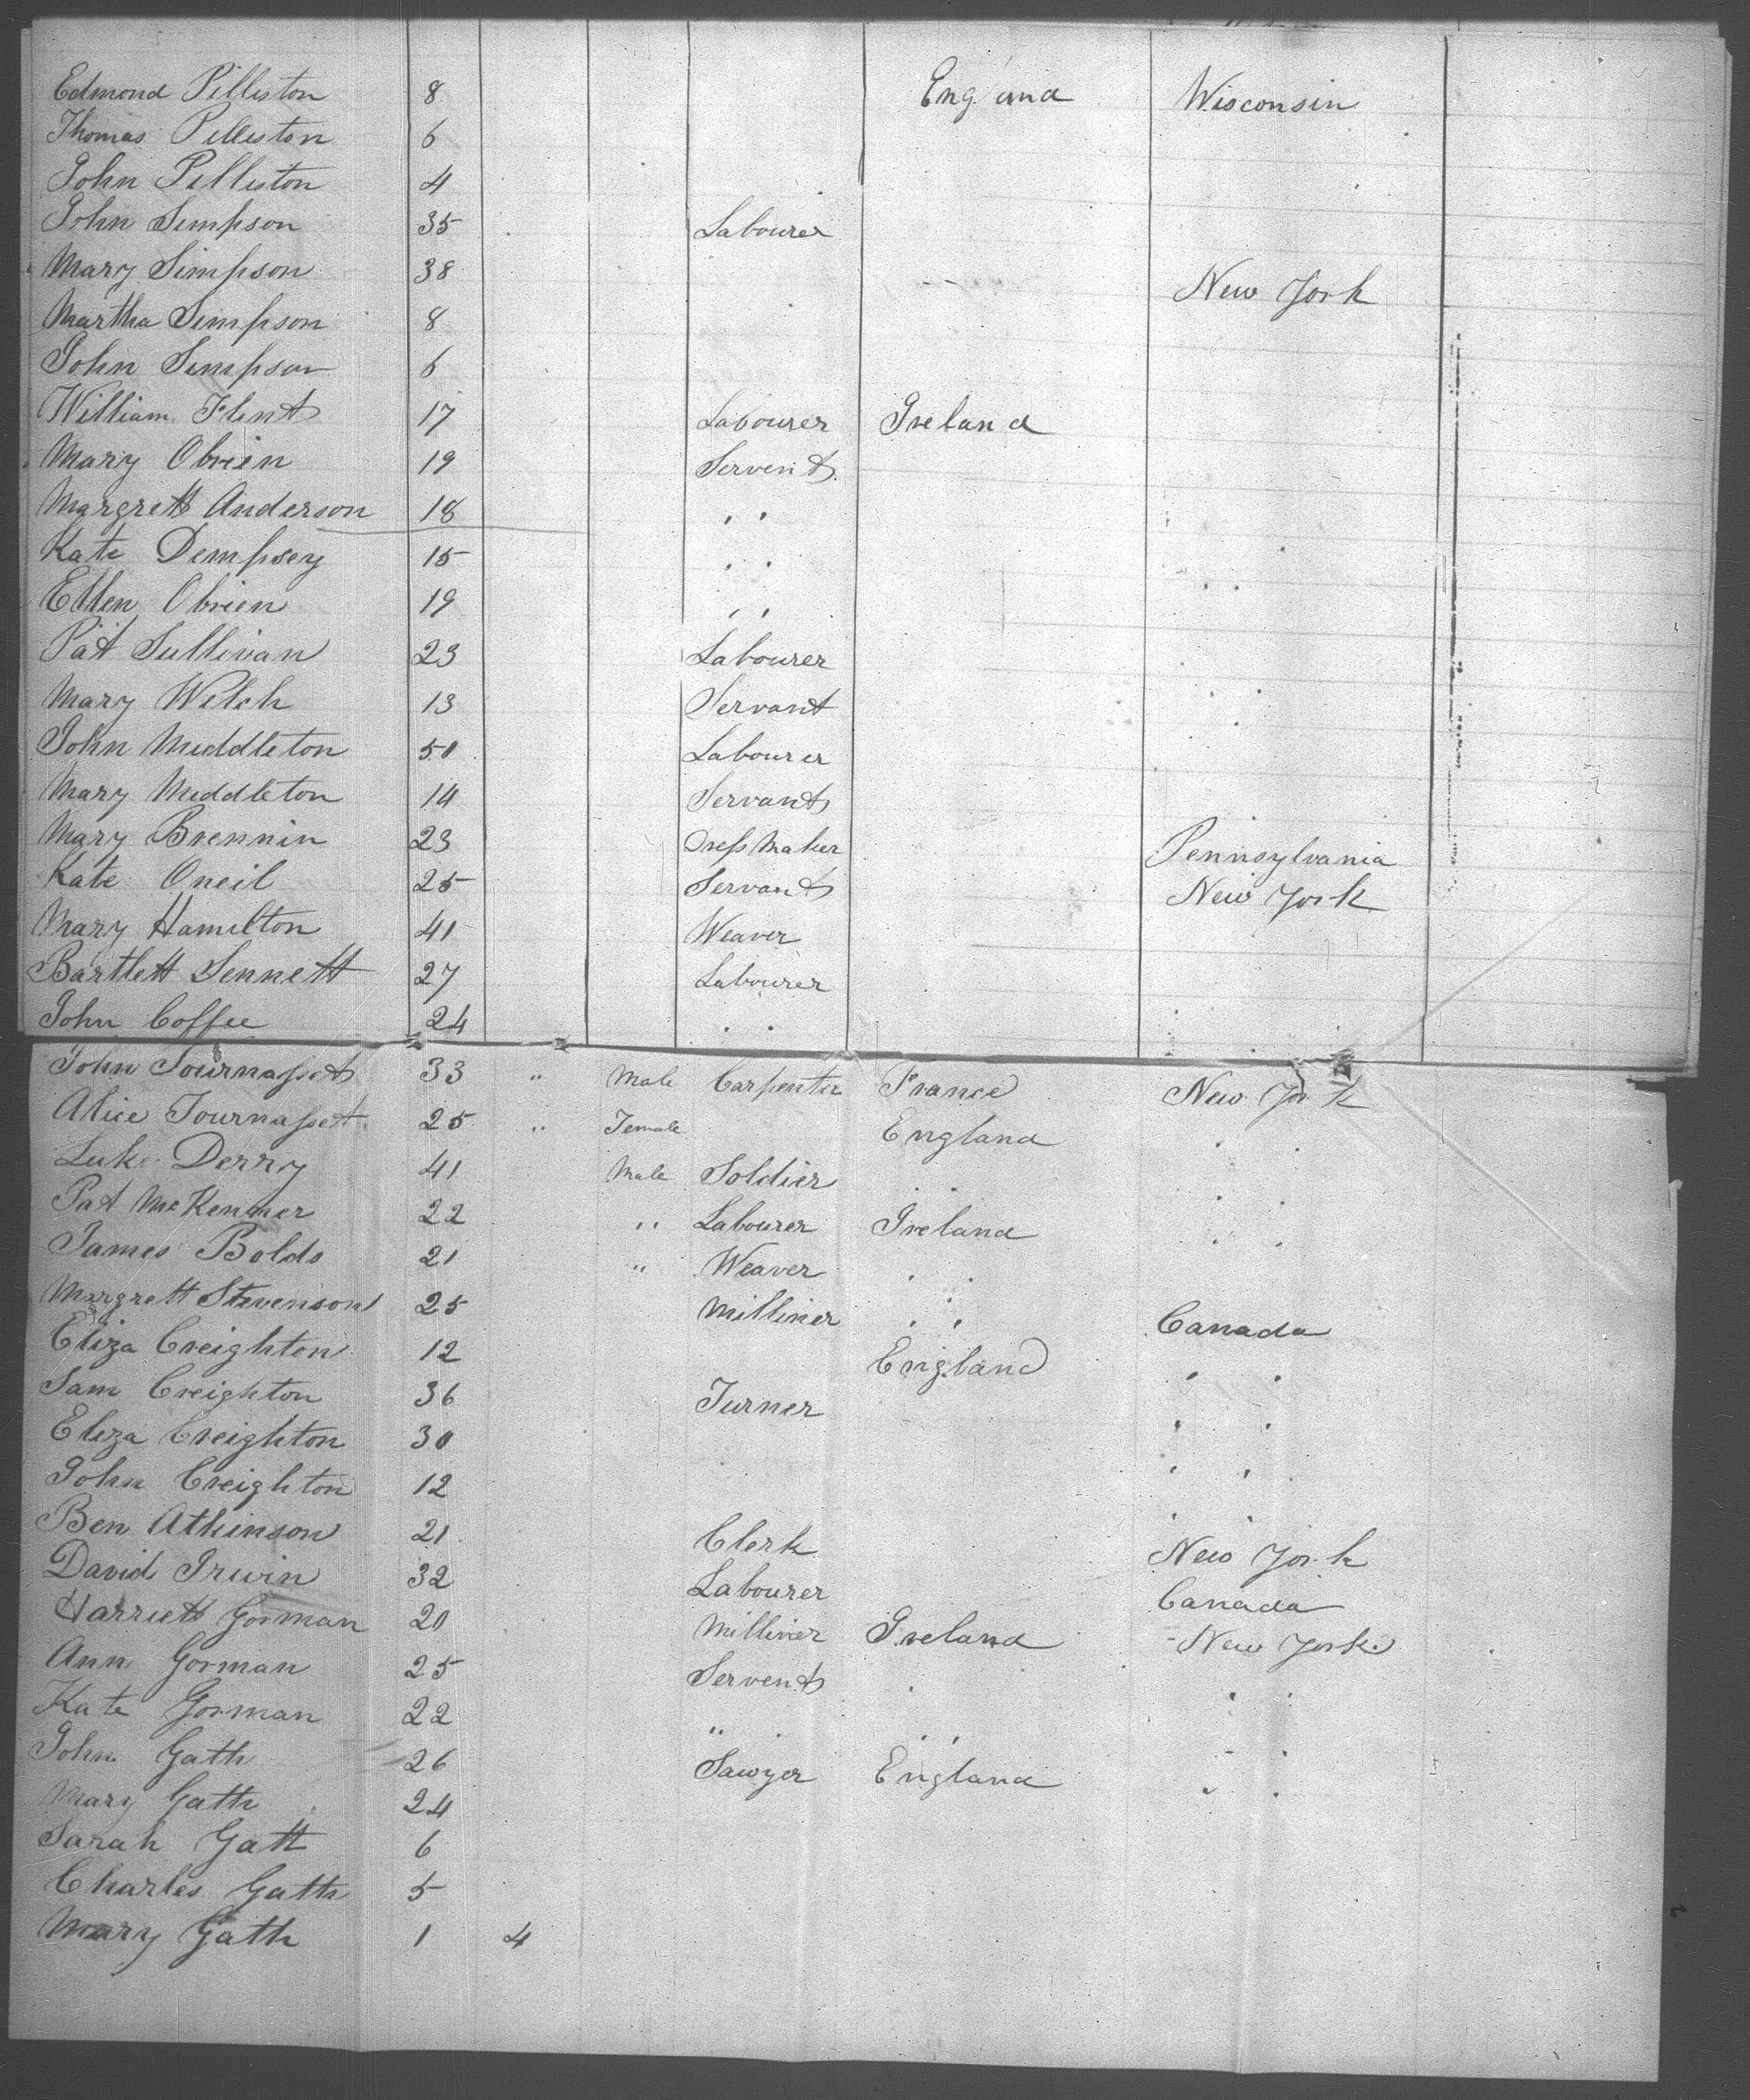 Edmond Pilliston 8 England Wisconsin
Thomas Pilliston 6
John Pilliston 4
John Simpson 35 Labourer
Mary Simpson 38 New York
Martha Simpson 8
John Simpson 6
William Flint 17 Labourer Ireland
Mary Obrien 19 Servent
Margrett Anderson 18 " "
Kate Dempsey 15 " "
Ellen Obrien 19 " "
Pat Sullivan 23 Labourer
Mary Welch 13 Servant
John Middleton 50 Labourer
Mary Middleton 14 Servant
Mary Brennin 23 Dress Maker Pennsylvania
Kate Oneil 25 Servant New York
Mary Hamilton 41 Weaver
Bartlett Sennett 27 Labourer
John Coffee 24 " "
John Tournassett 33 " Male Carpenter France New York
Alice Tournassett 25 " Female England " "
Luke Derry 41 Male Soldier " " " "
Pat 22 " Labourer Ireland " "
James Bolds 21 " Weaver " "
Margrett Stevenson 25 Milliner " " Canada
Eliza Creighton 12 England " "
Sam Creighton 36 Turner " "
Eliza Creighton 30 " "
John Creighton 12 " "
Ben Atkinson 21 Clerk New York
David Irwin 32 Labourer Canada
Harriett Gorman 20 Milliner Ireland New York
Ann Gorman 25 Servent " " "
Kate Gorman 22 " " " " "
John Gath 26 Sawyer England " "
Mary Gath 24
Sarah Gatt 6
Charles Gath 5
Mary Gath 1 4